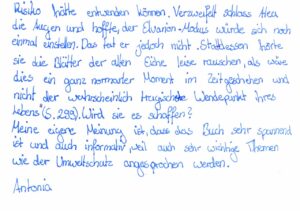 Risiko hätte entwenden können. Verzweifelt schloss Alea
die Augen und hoffte, der Elvarion-Modus würde sich noch
einmal einstellen. Das tat er jedoch nicht. Stattdessen hörte
sie die Blätter der alten Eiche leise rauschen, als wäre
dies ein ganz normaler Moment im Zeitgeschehen und
nicht der wahrscheinlich tragischste Wendepunkt ihres
Lebens" (S. 299). Wird sie es schaffen?
Meine eigene Meinung ist, dass das Buch sehr spannend
ist und auch informativ, weil auch sehr wichtige Themen
wie der Umweltschutz angesprochen werden.
Antonia